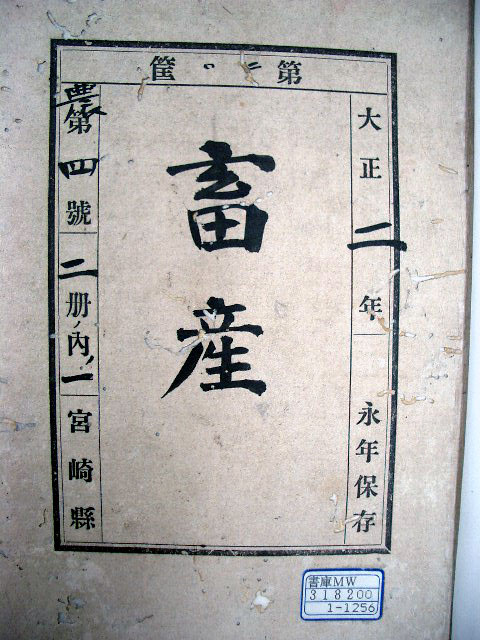 第二筐
大正二年
永年保存
畜産
農第四號
二册ノ内ノ一
宮崎縣
書庫MW
318200
1-1256